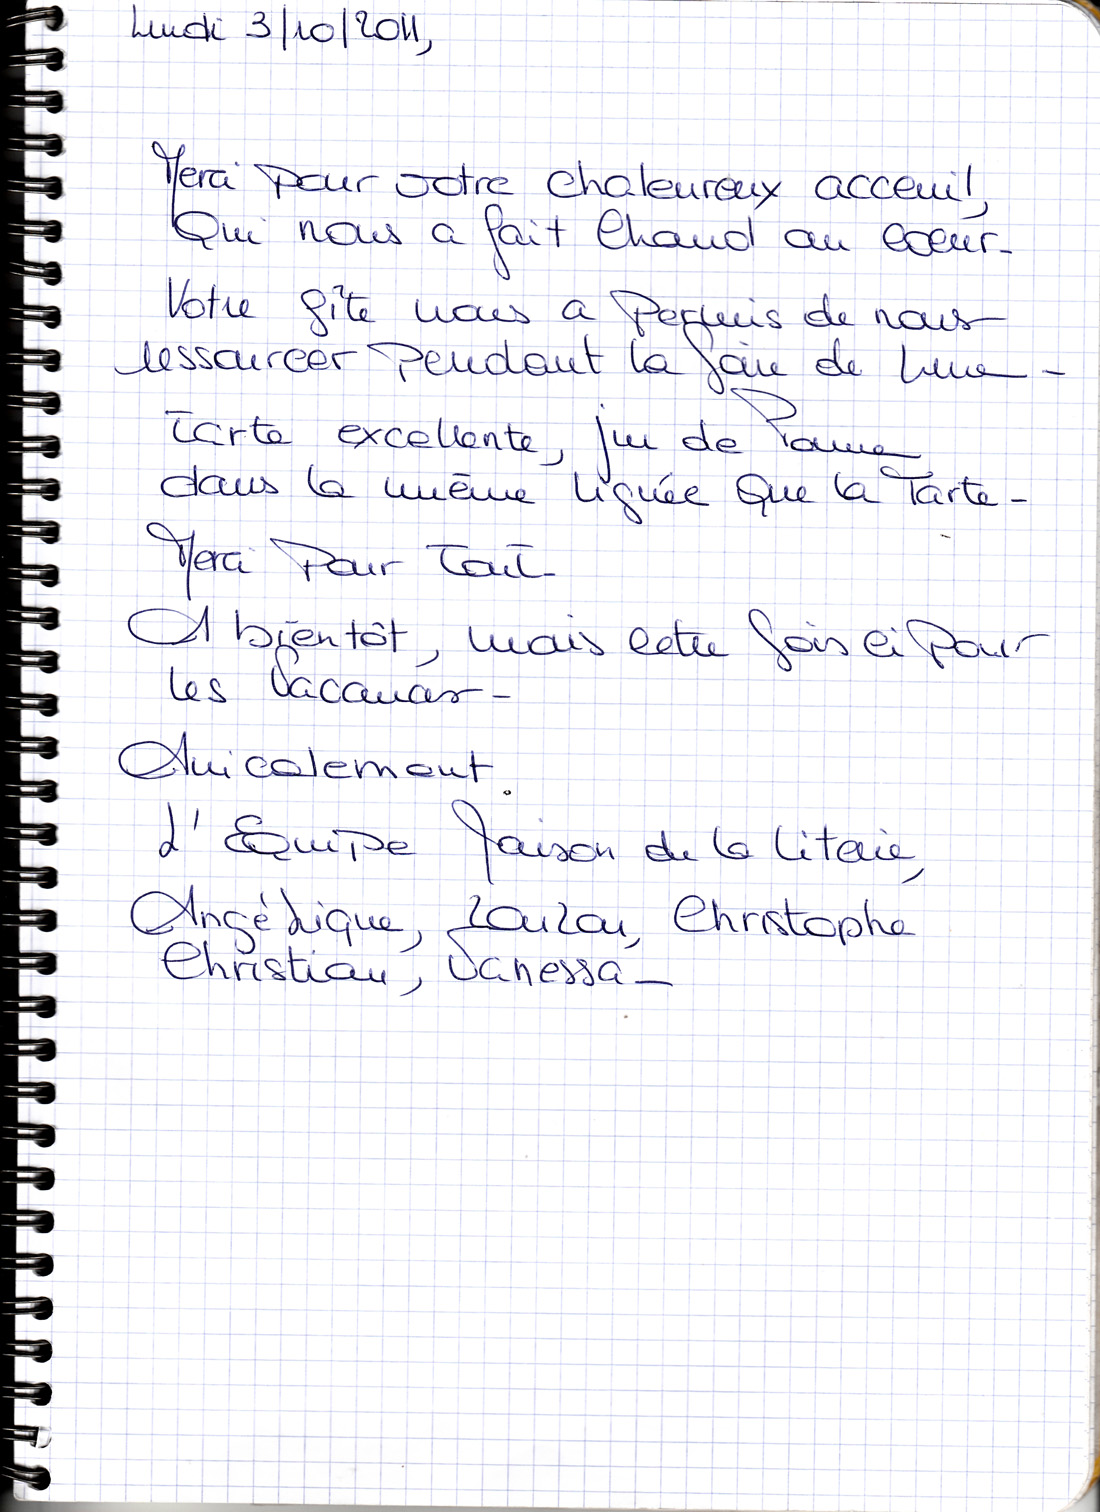 Lundi 3/10/2011,
Merci Pour votre chaleureux acceuil,
Qui nous a fait Chaud au coeur-
Votre gîte nous a Permis de nous
ressourcer Pendant la foire de
Tarte excellente, jus de Pomme
dans la même lignée Que la Tarte-
Merci Pour Tout-
A bientôt, mais cette fois ci Pour
les Vacances-
Amicalement.
L'Equipe Maison de la Literie,
Angélique, Zouzou, Christophe
Christian, Vanessa-